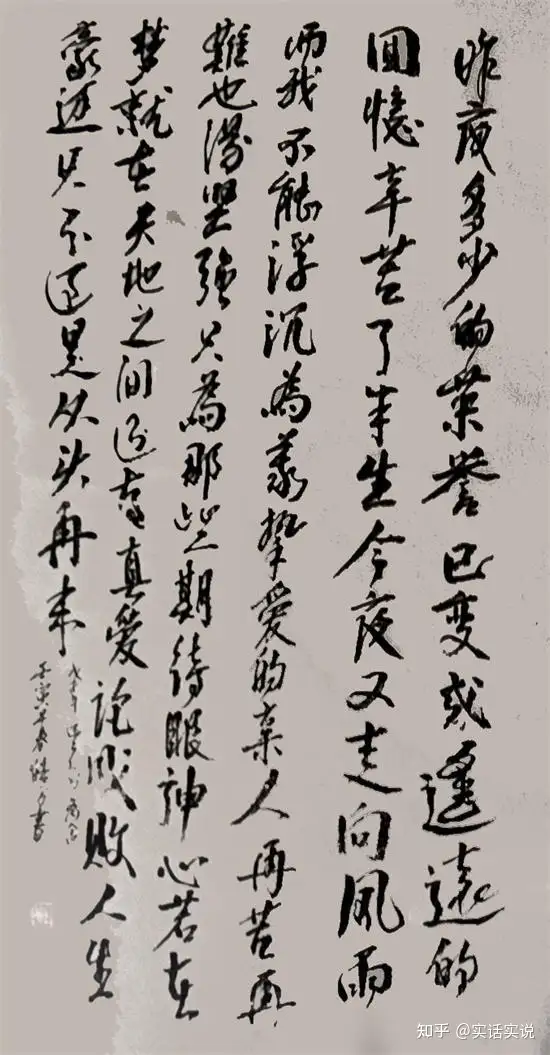 昨夜多少的荣誉已变成遥遠的
回憶辛苦了半生今夜又走向風雨
而我不能浮沉為我挚愛的亲人再苦再
難也得坚強只為那些期待眼神心若在
梦就在天地之间还有真愛论成敗人生
豪迈只不過是从头再来
壬寅年春
书
知乎 @实话实说